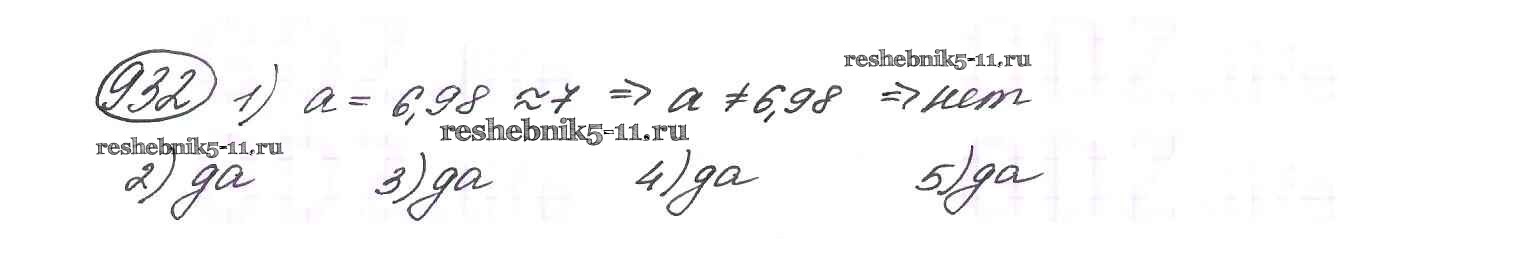 932 1) a = 6,98 ≈ 7 => a ≠ 6,98 => нет
reshebnik5-11.ru
reshebnik5-11.ru
reshebnik5-11.ru
2) да 3) да 4) да 5) да